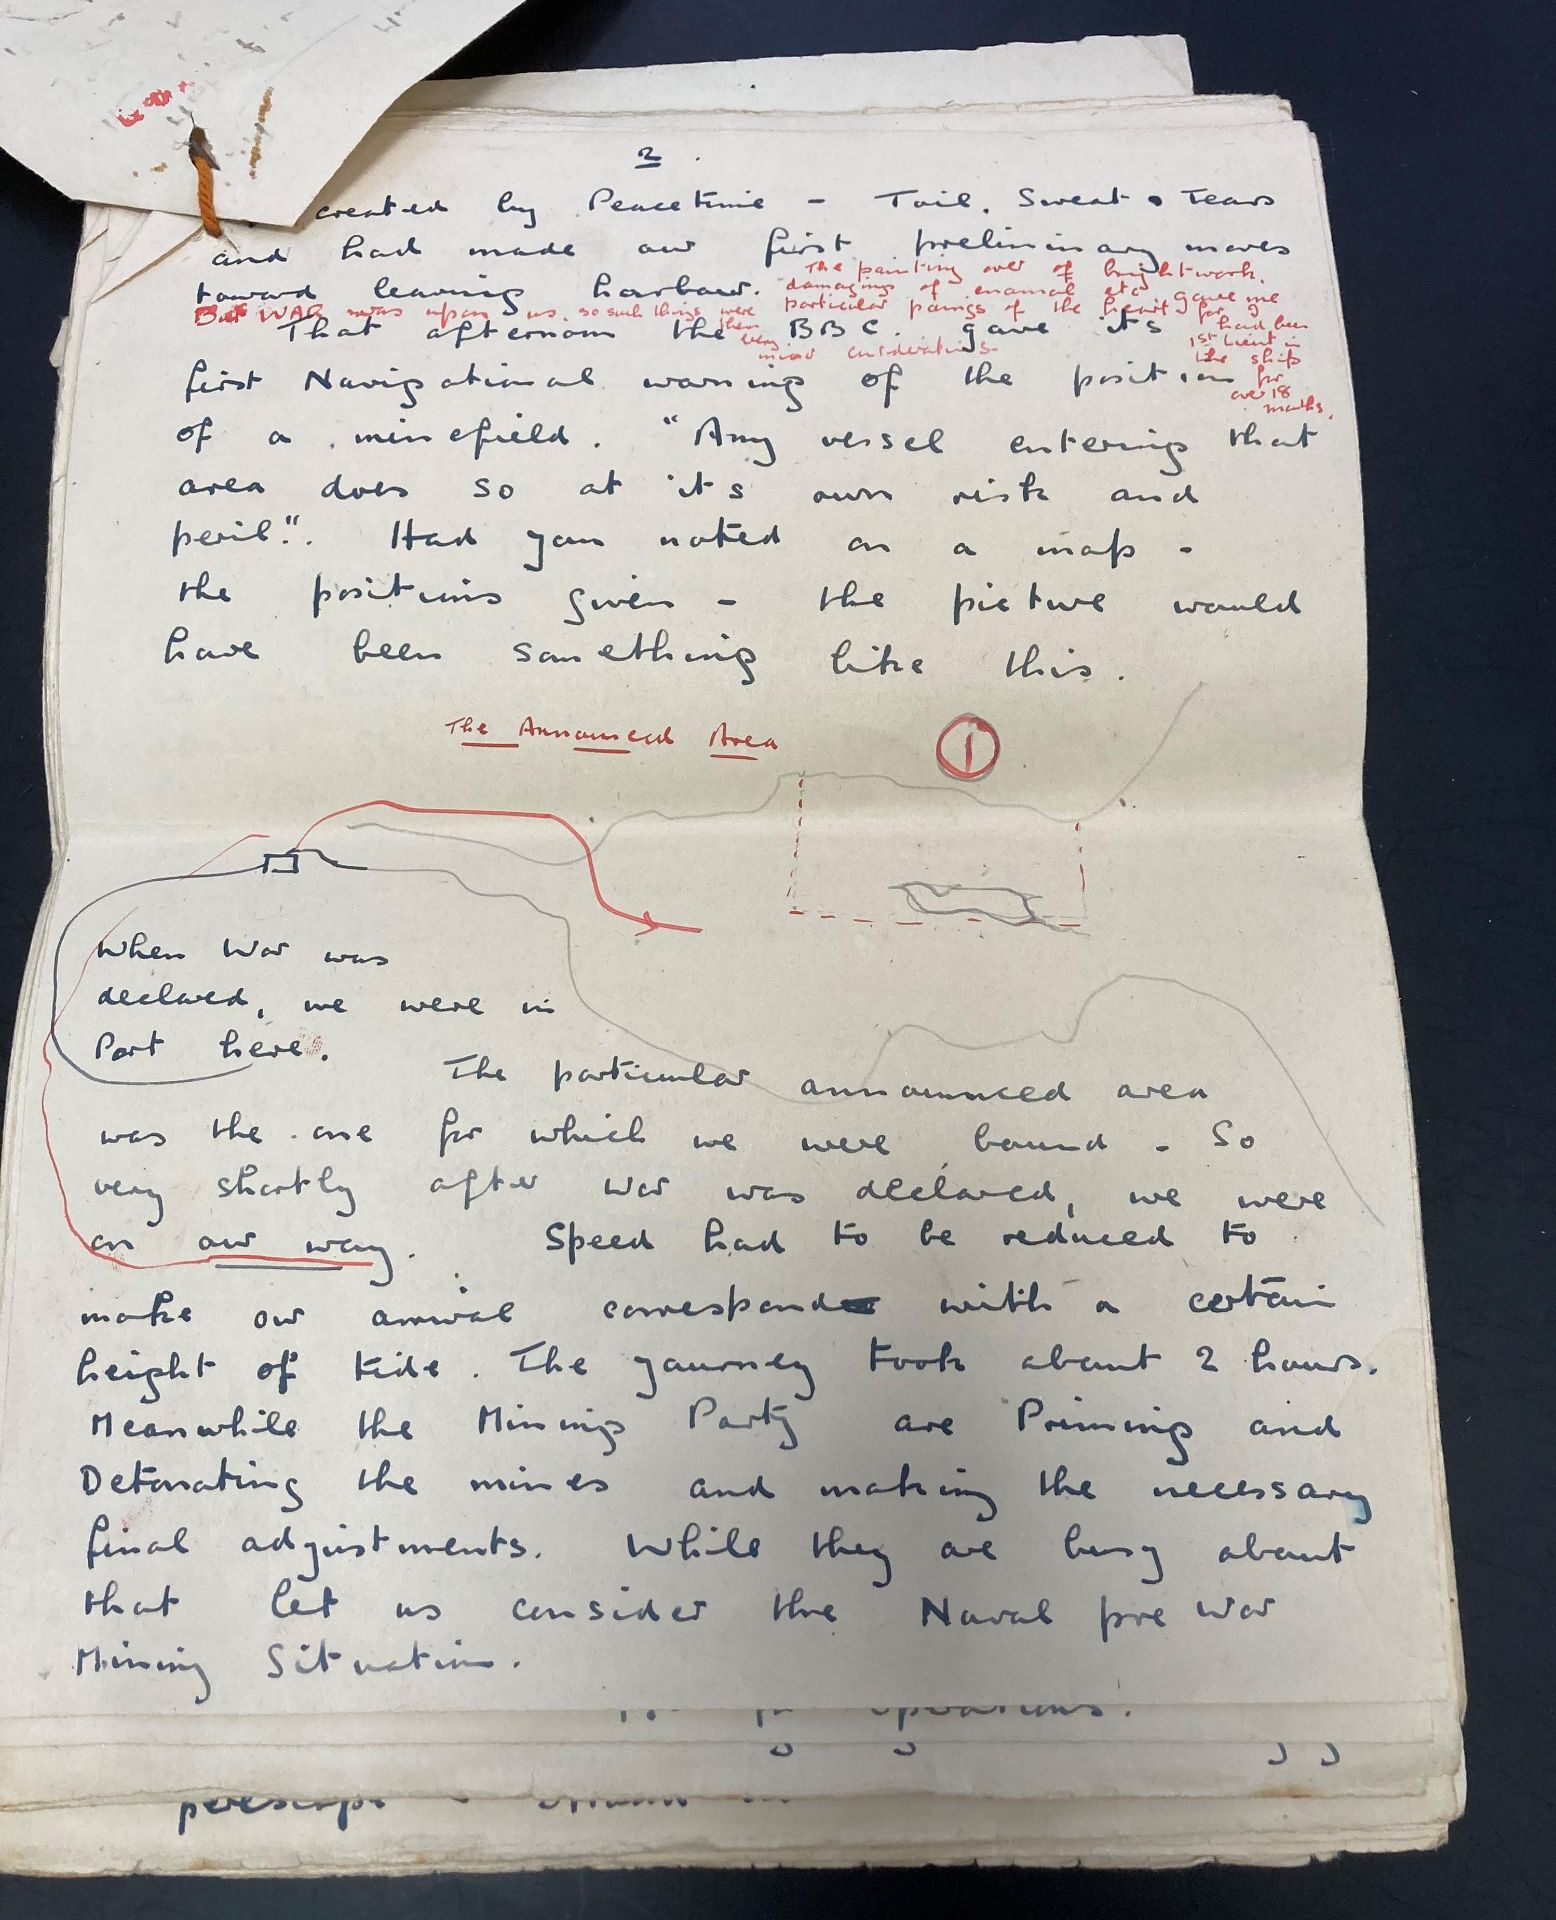 2.
created by Peacetime - Toil, Sweat & Tears
and had made our first preliminary moves
toward leaving harbour. The painting over of brightwork,
damaging of enamel etc gave me
particular pangs of the heart for I
had been
1st Lieut in
the ship
for
over 18
months.
But WAR was upon us, so such things were
then
very
minor considerations.
That afternoon the BBC. gave it's
first Navigational warning of the position
of a minefield. "Any vessel entering that
area does so at it's own risk and
peril". Had you noted on a map -
the positions given - the picture would
have been something like this.
The Announced Area
1
When War was
declared, we were in
Port here.
The particular announced area
was the one for which we were bound - So
very shortly after War was declared, we were
on our way. Speed had to be reduced to
make our arrival correspond with a certain
height of tide. The journey took about 2 hours.
Meanwhile the Mining Party are Priming and
Detonating the mines and making the necessary
final adjustments. While they are busy about
that let us consider the Naval pre War
Mining Situation.
operations.